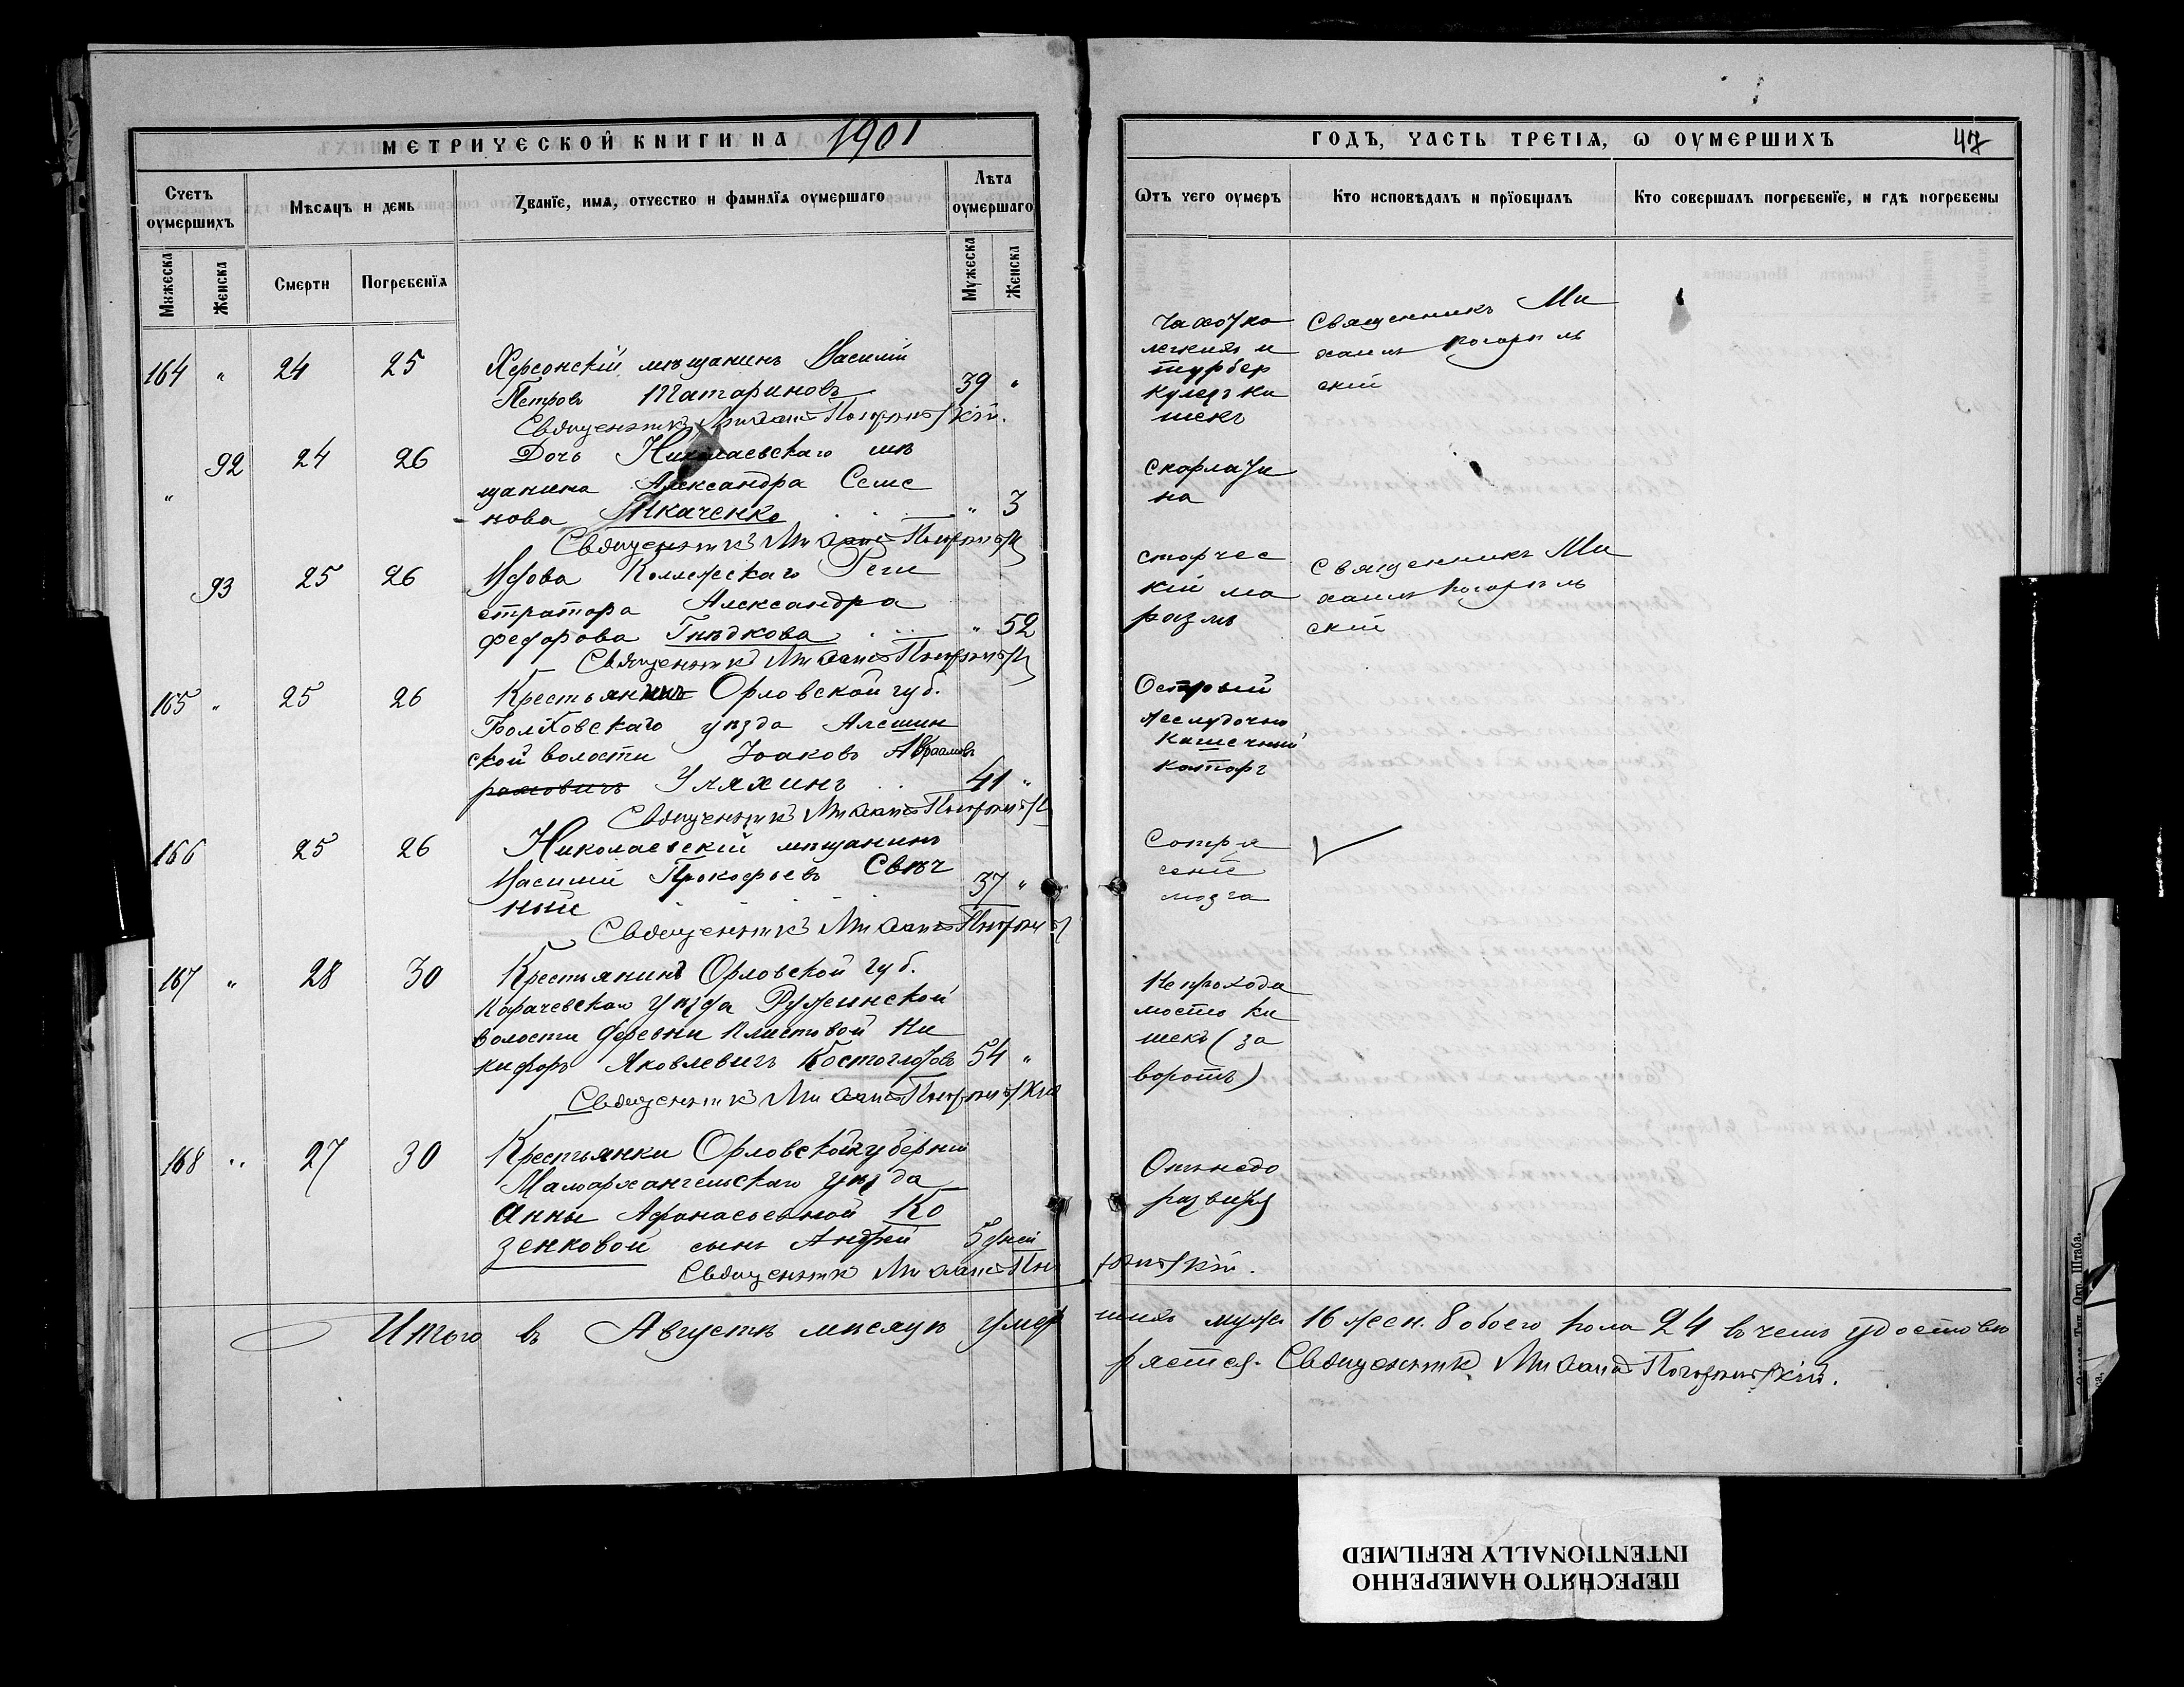 МЕТРИЧЕСКОЙ КНИГИ НА 1901
ГОДЪ, ЧАСТЬ ТРЕТІЯ, Ѡ ОУМЕРШИХЪ 47
Счетъ оумершихъ
Мѣсяцъ и день
Званіе, имя, отчество и фамилія оумершаго
Лѣта оумершаго
Ѿтъ чего оумеръ
Кто исповѣдалъ и пріобщалъ
Кто совершалъ погребеніе, и гдѣ погребены
Мужеска
Женска
Смерти
Погребенія
Мужеска
Женска
164 " 24 25 Херсонскій мѣщанинъ Василій
Петровъ Татариновъ 39 "
Священникъ Михаилъ Погорѣльскій.
Чахотка
легкихъ и
турбер
кулезъ ки
шекъ
Священникъ Ми
хаилъ Погорѣль
скій
" 92 24 26 Дочь Николаевскаго мѣ
щанина Александра Семе
нова Ткаченко " 3
Священникъ Михаилъ Погорѣльск
Скарлати
на
93 25 26 Вдова Коллежскаго Реги
стратора Александра
Федорова Гнѣдкова " 52
Священникъ Михаилъ Погорѣльск
старчес
кій ма
размъ
Священникъ Ми
хаилъ Погорѣль
скій
165 " 25 26 Крестьянинъ Орловской губ.
Болховскаго уѣзда Алешин
ской волости Іоаковъ Авраамовъ
рамовичъ Уляхинъ 41 "
Священникъ Михаилъ Погорѣльск
Острый
желудочно
кишечный
катаръ
166 25 26 Николаевскій мѣщанинъ
Василій Прокофьевъ Свѣч
ный 37 "
Священникъ Михаилъ Погорѣльск
Сотря
сеніе
мозга
167 " 28 30 Крестьянинъ Орловской губ.
Карачевскаго уѣзда Ружинской
волости деревни Ни
кифоръ Яковлевичъ Костоглодовъ 54 "
Священникъ Михаилъ Погорѣльскій
Непрохода
мость ки
шекъ (за
воротъ)
168 " 27 30 Крестьянки Орловской губерніи
Малоархангельскаго уѣзда
Анны Афанасьевной Ко
зенковой сынъ Андрей 5 дней
Священникъ Михаилъ Погорѣльскій.
Отъ недо
развитія
Итого въ Августѣ мѣсяцѣ умер шихъ муж. 16 жен. 8 обоего пола 24 въ чемъ удостовѣ
ряется. Священникъ Михаилъ Погорѣльскій.
Окр. Штаба.
ПЕРЕСНЯТО НАМЕРЕННО
INTENTIONALLY REFILMED